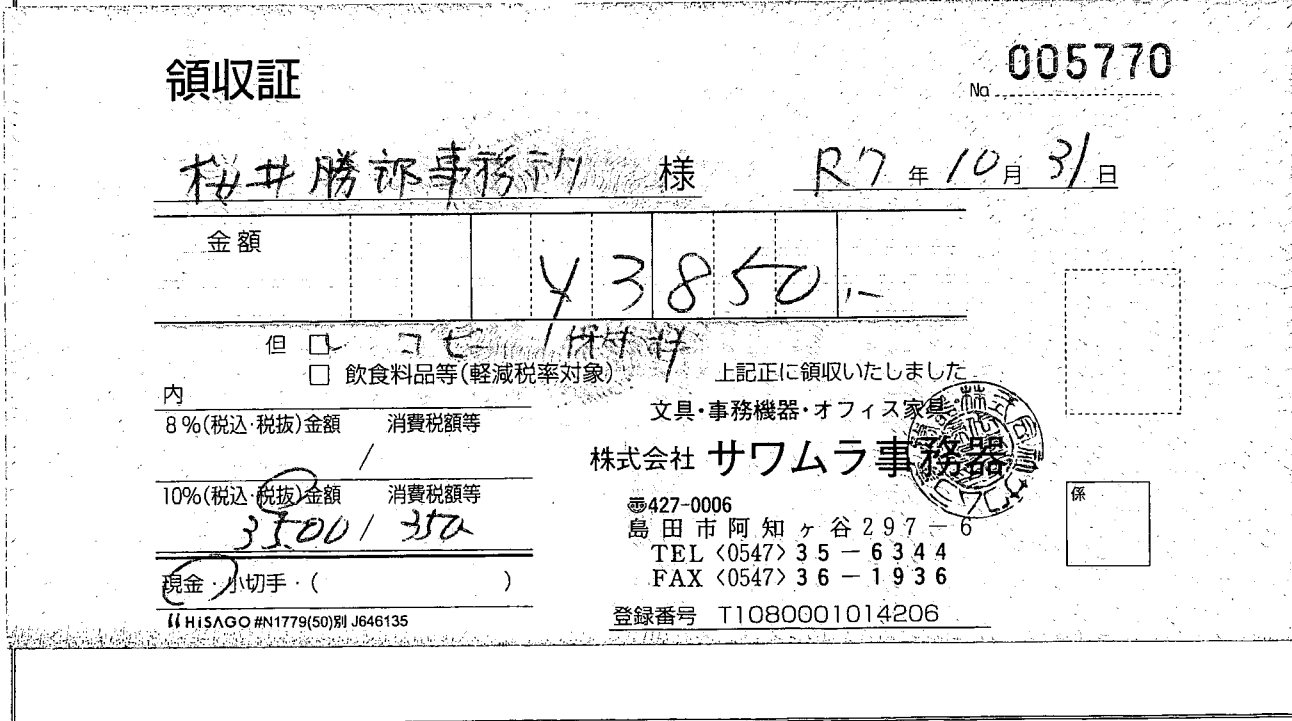 領収証
No 005770
桜井勝郎事務所 様 R7年10月31日
金額 ¥3850,-
但 レ コピー用材料
□ 飲食料品等(軽減税率対象) 上記正に領収いたしました
内
8%(税込・税抜)金額 消費税額等
/
10%(税込・税抜)金額 消費税額等
3500 / 350
現金・小切手・( )
HiSAGO #N1779(50)別 J646135
文具・事務機器・オフィス家具
株式会社 サワムラ事務器
〠427-0006
島田市阿知ヶ谷297-6
TEL〈0547〉35-6344
FAX〈0547〉36-1936
登録番号 T1080001014206
係